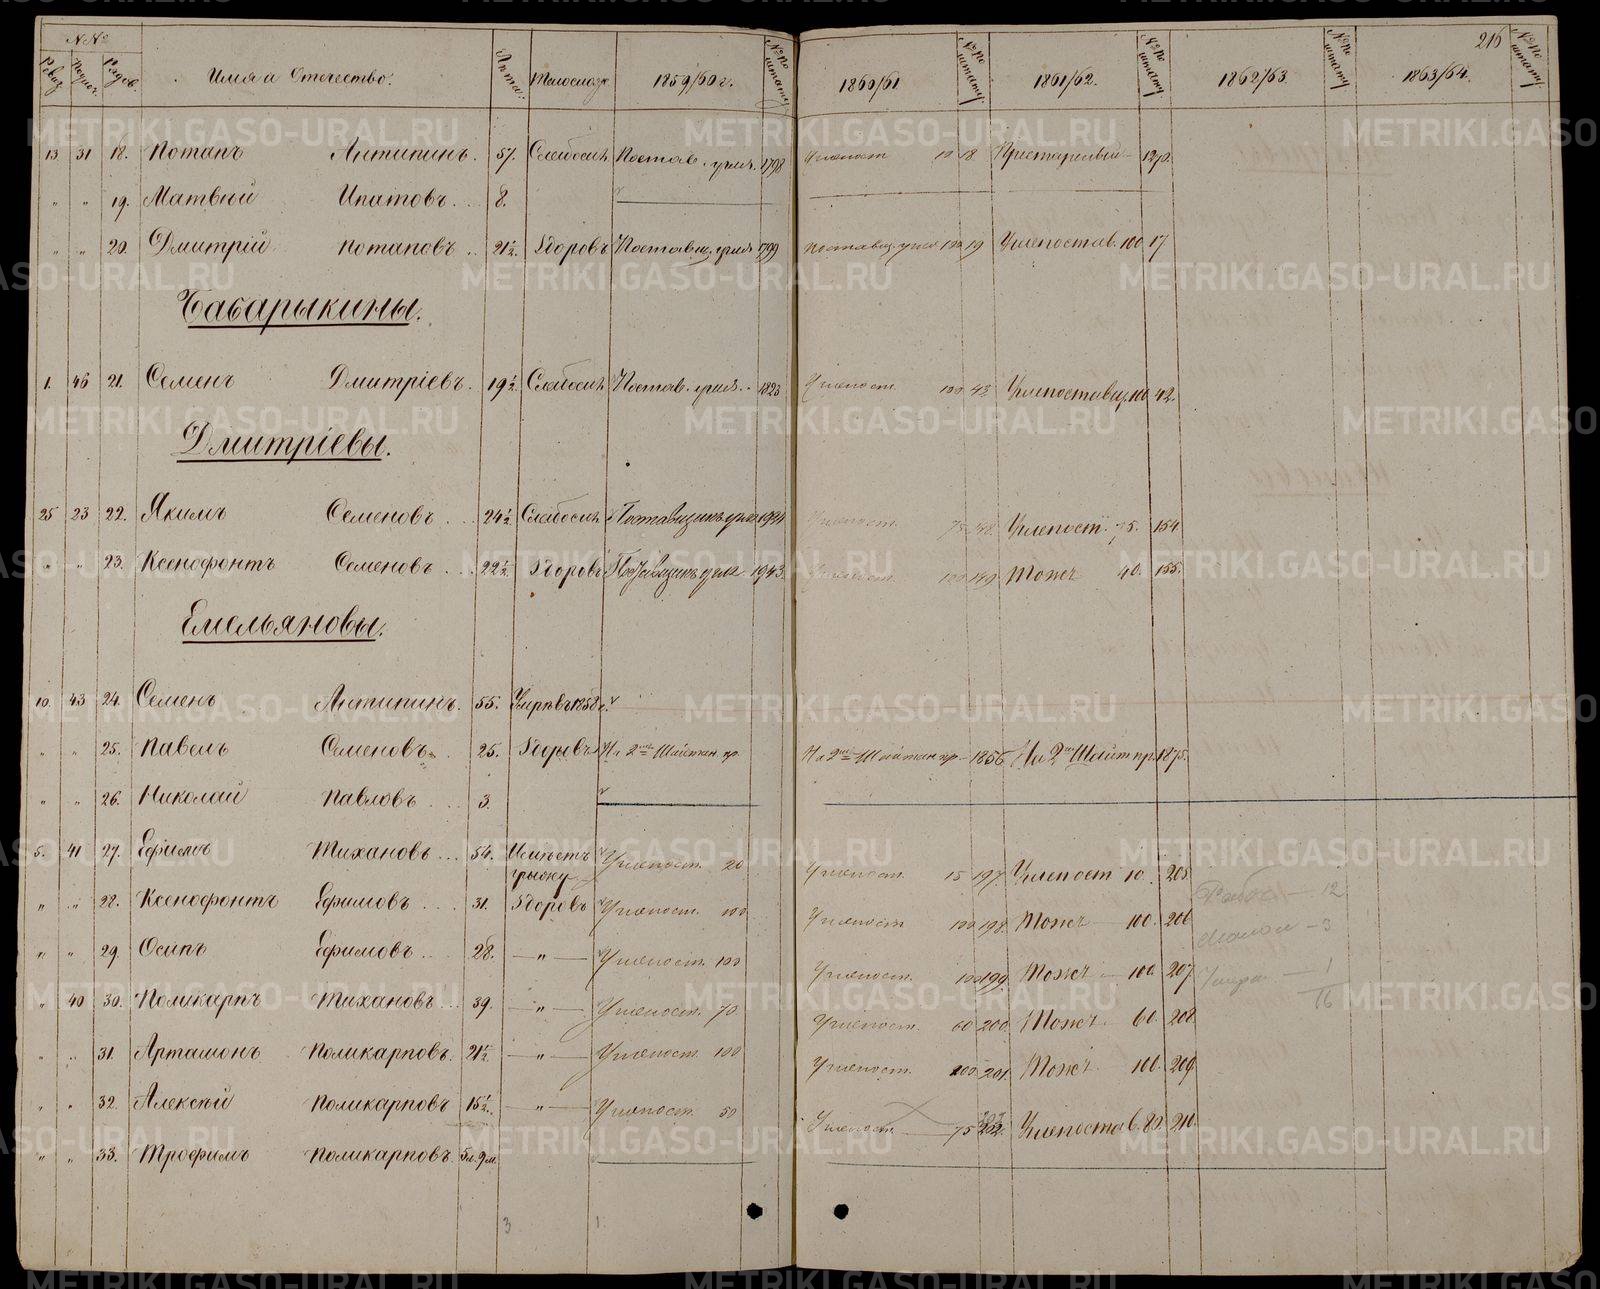 №№
Ревиз. Родов. Имя и Отечество. Лета. Телослож. 1859/60 г. №№ по штату 1860/61 №№ по штату 1861/62. №№ по штату 1862/63 №№ по штату 1863/64. №№ по штату
216
13 31 18. Потапъ Антипинъ. 57. Слабосил. Постав. угля. 1798 Углепост 10 18 Престарелый 12
" " 19. Матвѣй Ипатовъ 8.
" " 20. Дмитрій Потаповъ 21½. Здоровъ Поставщ. угля 1799 поставщ. угля 100 19 Углепостав. 100 17
Бабарыкины.
1. 46 21. Семенъ Дмитріевъ. 19½. Слабосил. Постав. угля 1823 Углепост. 100 43 Углепоставщ. 100 42.
Дмитріевы.
25 23 22. Якимъ Семеновъ 24½. Слабосил. Поставщикъ угля 1934 Углепост. 75 148. Углепост. 75. 154
" " 23. Ксенофонтъ Семеновъ 22½. Здоровъ Поставщикъ угля 1943. Углепост. 100 149 Тоже 40. 155.
Емельяновы.
10. 43 24. Семенъ Антипинъ. 55. Умеръ въ 1858 г.
" " 25. Павелъ Семеновъ 25. Здоровъ На 2мъ Шайтан. пр. На 2мъ Шайтан пр 1856 На 2мъ Шайт пр. 1875.
" " 26. Николай Павловъ 3.
5. 41 27. Ефимъ Тихановъ 54. Имѣетъ грыжу Углепост. 20 Углепост. 15 197. Углепост 10. 205
" " 28. Ксенофонтъ Ефимовъ 31. Здоровъ Углепост. 100 Углепост 100 198. Тоже 100. 206
Работ — 12
" " 29. Осипъ Ефимовъ 28. — " — Углепост. 100 Углепост. 100 199. Тоже 100. 207
Малол — 3
" 40 30. Поликарпъ Тихановъ 39. — " — Углепост. 70. Углепост. 60 200. Тоже 60. 208.
Умерш — 1
16
" " 31. Артамонъ Поликарповъ. 21½. — " — Углепост. 100 Углепост. 100. 201. Тоже 100. 209.
" " 32. Алексѣй Поликарповъ 15½. — " — Углепост. 50 Углепост. 75 202. Углепостав. 80. 210.
" " 33. Трофимъ Поликарповъ. 5л. 9м.
3 1
METRIKI.GASO-URAL.RU